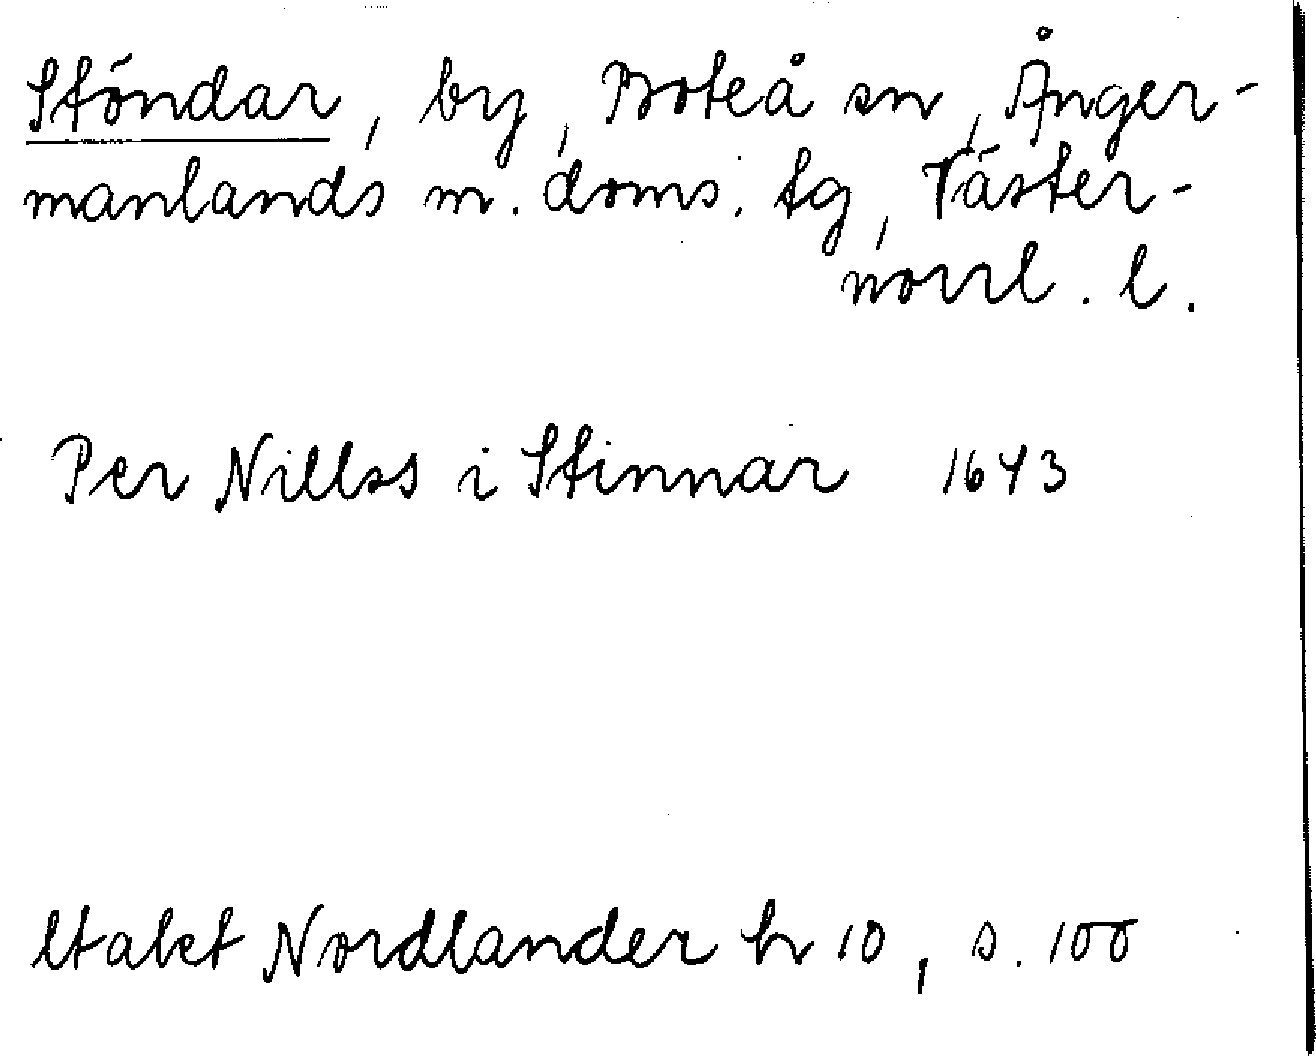 Stöndar, by, Boteå sn, Ånger-
manlands m. doms. tg, Väster-
norrl. l.
Per Nillss i Stinnar 1643
Nordlander h 10, s. 100